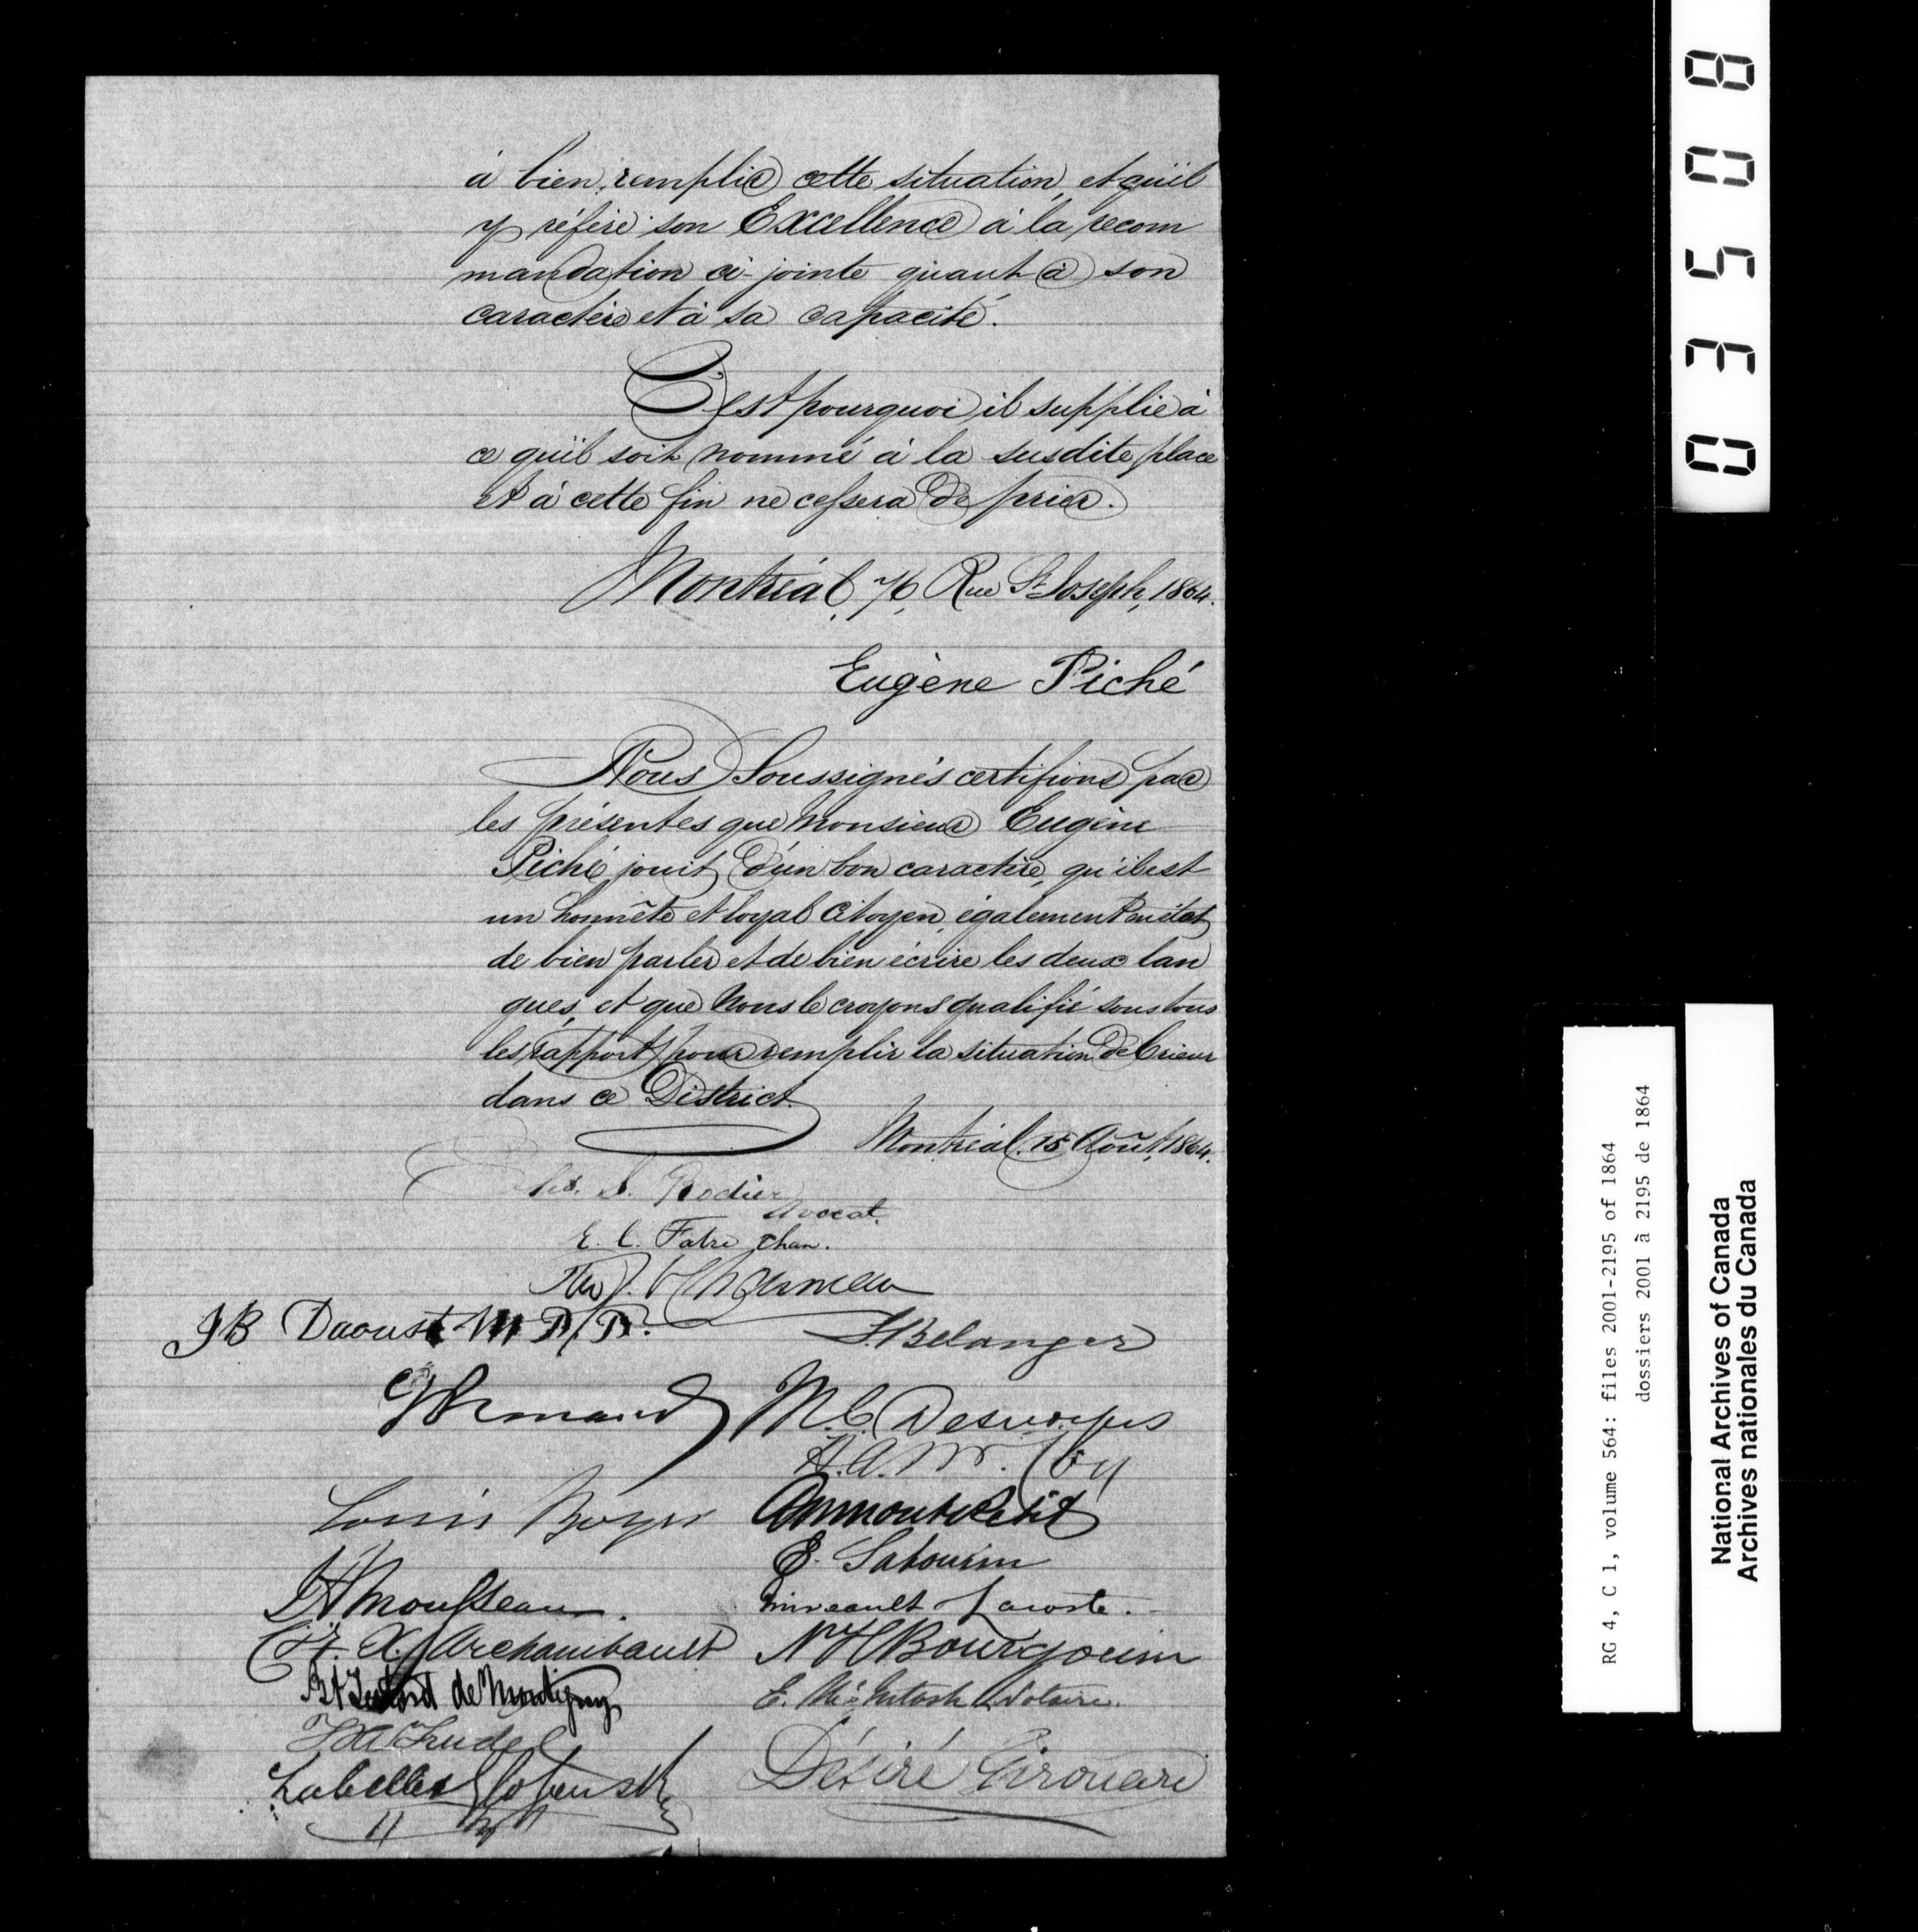 à bien remplir cette situation, et qu'il
y réfère son Excellence à la recom
mandation ci-jointe quant à son
caractère et à sa capacité.
C'est pourquoi il supplie à
ce qu'il soit nommé à la susdite place
et à cette fin ne cessera de prier.
Montréal, 76, Rue St Joseph, 1864.
Eugène Piché
Nous Soussignés certifions par
les présentes que Monsieur Eugène
Piché jouit d'un bon caractère, qu'il est
un honnête et loyal Citoyen, également en état
de bien parler et de bien écrire les deux lan
gues, et que nous le croyons qualifié sous tous
les rapports pour remplir la situation de Crieur
dans ce District.
Montréal. 15 Août, 1864.
S. Rodier
Avocat.
E. C. Fabre Chan.
J B Daoust M P P.
Belanger
M. C. Desnoyers
Louis Boyer
E. Sabourin
Mousseau
Lacoste.
F. X. Archambault
Bourgouin
de Montigny
E. McIntosh Notaire.
Trudel
Désiré Girouard
Labelle
0 3 5 0 8
RG 4, C 1, volume 564: files 2001-2195 of 1864
dossiers 2001 à 2195 de 1864
National Archives of Canada
Archives nationales du Canada